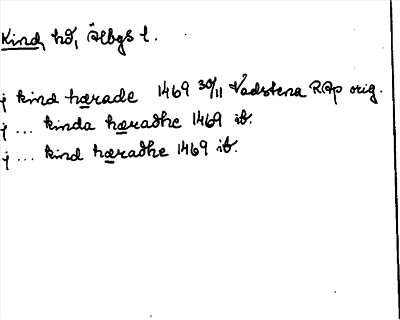 Kind, hd, Älbgs l.
j kind hærade 1469 30/11 Vadstena RAp orig.
j ... kinda hæradhe 1469 ib.
j ... kind hæradhe 1469 ib.